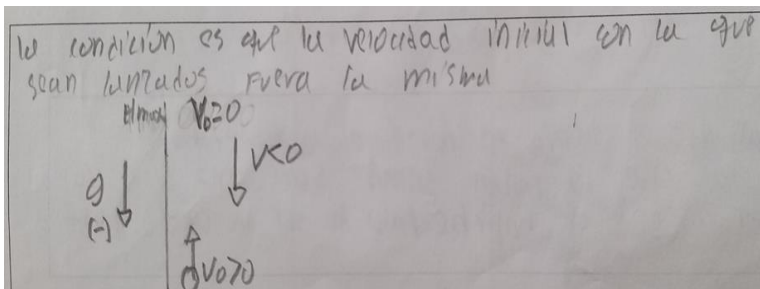 la condición es que la velocidad inicial con la que
sean lanzados fuera la misma
Hmax V₀=0
V<0
g
(-)
V₀>0